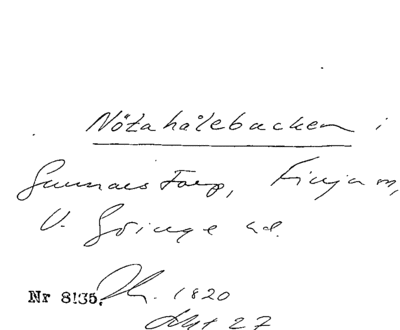 Nötahålebacken i
Gunnarstorp, Finja sn,
V. Göinge hd.
Nr 8135, 1820
27